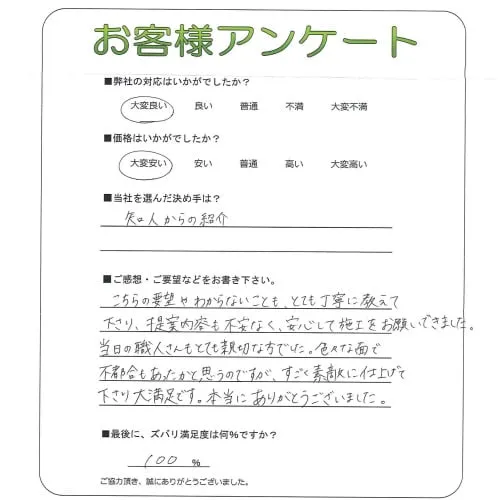 お客様アンケート
■弊社の対応はいかがでしたか？
大変良い 良い 普通 不満 大変不満
■価格はいかがでしたか？
大変安い 安い 普通 高い 大変高い
■当社を選んだ決め手は？
知人からの紹介
■ご感想・ご要望などをお書き下さい。
こちらの要望やわからないことも、とても丁寧に教えて
下さり、提案内容も不安なく、安心して施工をお願いできました。
当日の職人さんもとても親切な方でした。色々な面で
不都合もあったかと思うのですが、すごく素敵に仕上げて
下さり大満足です。本当にありがとうございました。
■最後に、ズバリ満足度は何%ですか？
100 %
ご協力頂き、誠にありがとうございました。